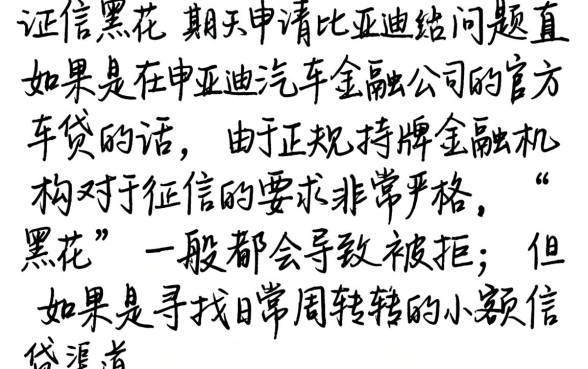 证信黑花 期天申请比亚迪结问题直
如果是在申亚迪汽车金融公司的官方
车贷的话，由于正规持牌金融机
构对于征信的要求非常严格，“
黑花”一般都会导致被拒；但
如果是寻找日常周转转的小额信
贷渠道